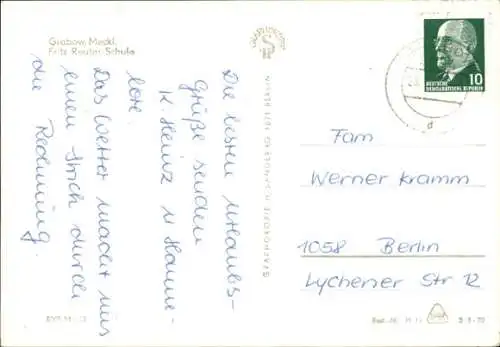 Grabow, Meckl.
Fritz Reuter-Schule
Die besten Urlaubs-
Grüße senden
K. Heinz u Hanne-
lore.
Das Wetter macht uns
einen Strich durch
die Rechnung.
10
DEUTSCHE
DEMOKRATISCHE REPUBLIK
d
Fam
Werner Kramm
1058 Berlin
Lychener Str 12